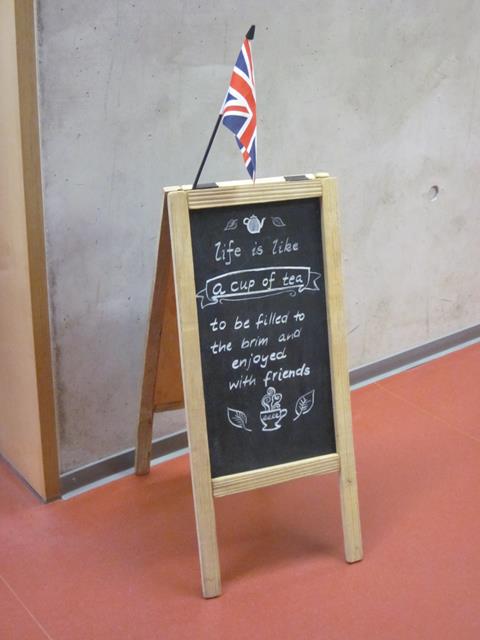 life is like
a cup of tea
to be filled to
the brim and
enjoyed
with friends